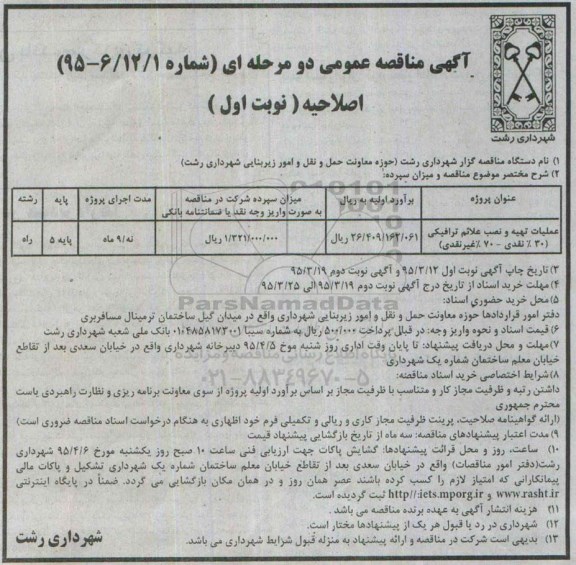 آگهی مناقصه عمومی دو مرحله ای (شماره ۹۵-۶/۱۲/۱)
اصلاحیه (نوبت اول)
شهرداری رشت
۱) نام دستگاه مناقصه گزار شهرداری رشت (حوزه معاونت حمل و نقل و امور زیربنایی شهرداری رشت)
۲) شرح مختصر موضوع مناقصه و میزان سپرده:
عنوان پروژه | برآورد اولیه به ریال | میزان سپرده شرکت در مناقصه به صورت واریز وجه نقد یا ضمانتنامه بانکی | مدت اجرای پروژه | پایه | رشته
عملیات تهیه و نصب علائم ترافیکی (۳۰٪ نقدی - ۷۰٪ غیرنقدی) | ۲۶/۴۰۹/۱۶۲/۰۶۱ ریال | ۱/۳۲۱/۰۰۰/۰۰۰ ریال | نه/۹ ماه | پایه ۵ | راه
۳) تاریخ چاپ آگهی نوبت اول ۹۵/۳/۱۲ و آگهی نوبت دوم ۹۵/۳/۱۹
۴) مهلت خرید اسناد از تاریخ درج آگهی نوبت دوم ۹۵/۳/۱۹ الی ۹۵/۳/۲۵
۵) محل خرید حضوری اسناد:
دفتر امور قراردادها حوزه معاونت حمل و نقل و امور زیربنایی شهرداری واقع در میدان گیل ساختمان ترمینال مسافربری
۶) قیمت اسناد و نحوه واریز وجه: در قبال پرداخت ۵۰۰/۰۰۰ ریال به شماره سیبا ۰۱۰۴۸۵۸۱۷۳۰۰۱ بانک ملی شعبه شهرداری رشت
۷) مهلت و محل دریافت پیشنهاد: تا پایان وقت اداری روز شنبه مورخ ۹۵/۴/۵ دبیرخانه شهرداری واقع در خیابان سعدی بعد از تقاطع خیابان معلم ساختمان شماره یک شهرداری
۸) شرایط اختصاصی خرید اسناد مناقصه:
داشتن رتبه و ظرفیت مجاز کار و متناسب با ظرفیت مجاز بر اساس برآورد اولیه پروژه از سوی معاونت برنامه ریزی و نظارت راهبردی ریاست محترم جمهوری
(ارائه گواهینامه صلاحیت، پرینت ظرفیت مجاز کاری و ریالی و تکمیلی فرم خود اظهاری به هنگام درخواست اسناد مناقصه ضروری است)
۹) مدت اعتبار پیشنهادهای مناقصه: سه ماه از تاریخ بازگشایی پیشنهاد قیمت
۱۰) ساعت، روز و محل قرائت پیشنهادها: گشایش پاکات جهت ارزیابی فنی ساعت ۱۰ صبح روز یکشنبه مورخ ۹۵/۴/۶ شهرداری رشت (دفتر امور مناقصات) واقع در خیابان سعدی بعد از تقاطع خیابان معلم ساختمان شماره یک شهرداری تشکیل و پاکات مالی پیمانکارانی که امتیاز لازم را کسب کرده باشند عصر همان روز و در همان مکان بازگشایی می گردد. ضمناً در پایگاه اینترنتی www.rasht.ir و http//:iets.mporg.ir ثبت گردیده است.
۱۱) هزینه انتشار آگهی به عهده برنده مناقصه می باشد.
۱۲) شهرداری در رد یا قبول هر یک از پیشنهادها مختار است.
۱۳) بدیهی است شرکت در مناقصه و ارائه پیشنهاد به منزله قبول شرایط شهرداری می باشد.
شهرداری رشت
ParsNamadData
۰۲۱-۸۸۳۴۹۶۷۰-۵